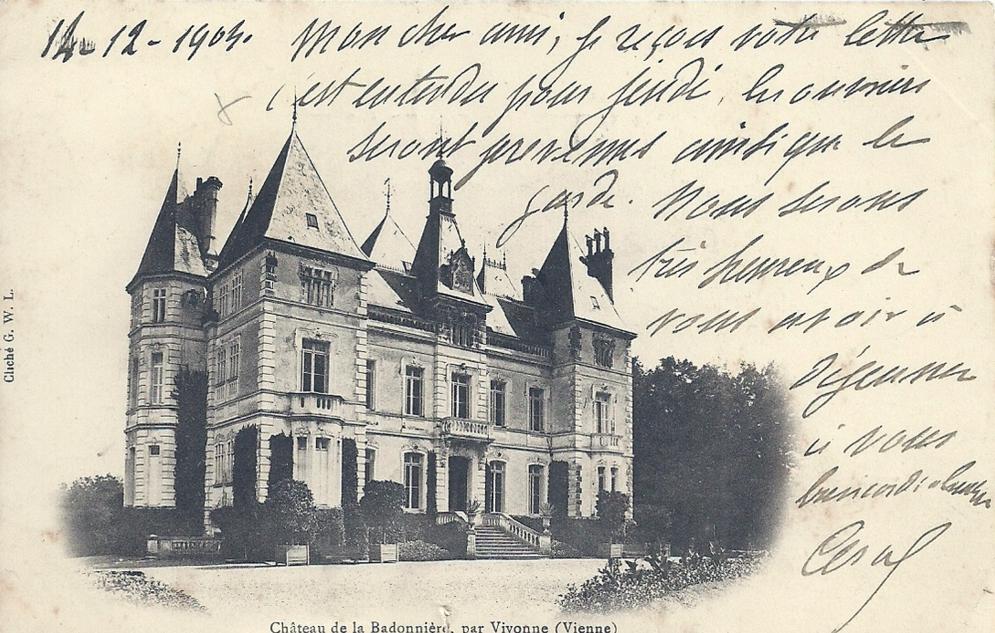 14-12-1904. Mon cher ami, je reçois votre lettre
c'est entendu pour jeudi, les ouvriers
seront prévenus ainsi que le
garde. Nous serons
très heureux de
vous avoir à
déjeuner
à vous
bien cordialement
Cliché G. W. L.
Château de la Badonnière, par Vivonne (Vienne)